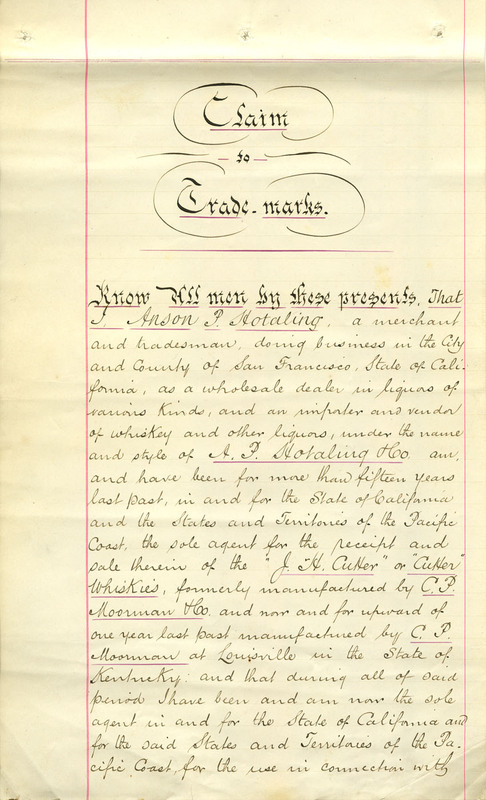 Claim
to
Trade-marks.
Know All men by these presents, That
I, Anson P. Hotaling, a merchant
and tradesman, doing business in the City
and County of San Francisco, State of Cali-
fornia, as a wholesale dealer in liquors of
various kinds, and an importer and vendor
of whiskey and other liquors, under the name
and style of A. P. Hotaling & Co. am,
and have been for more than fifteen years
last past, in and for the State of California
and the States and Territories of the Pacific
Coast, the sole agent for the receipt and
sale therein of the "J. H. Cutter" or "Cutter"
Whiskies, formerly manufactured by C. P.
Moorman & Co. and now and for upward of
one year last past manufactured by C. P.
Moorman at Louisville in the State of
Kentucky: and that during all of said
period I have been and am now the sole
agent in and for the State of California and
for the said States and Territories of the Pa-
cific Coast, for the use in connection with